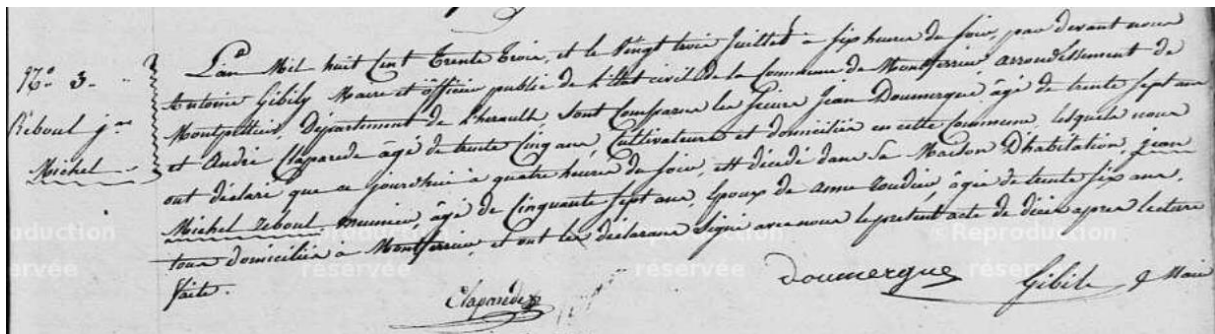 N.° 3.
Reboul jean
Michel
L'an Mil huit Cent Trente trois, et le Vingt trois Juillet à six heures du soir, par devant nous
Antoine Gibily Maire et officier public de l'Etat civil de la Commune de Montferrier arrondissement de
Montpellier, Département de l'herault sont Comparus les sieurs Jean Doumergue âgé de trente sept ans
et André Claparede âgé de trente Cinq ans, Cultivateurs et domiciliés en cette Commune, lesquels nous
ont déclaré que ce jourd'hui à quatre heures du soir, est décédé dans sa Maison D'habitation, jean
Michel reboul meunier âgé de Cinquante sept ans, Epoux de anne âgée de trente six ans,
tous domiciliés à Montferrier, et ont les déclarans signé avec nous le présent acte de décès après lecture
faite.
Claparede
Doumergue
Gibily Maire
Reproduction
réservée
réservée
©Reproduction
réservée